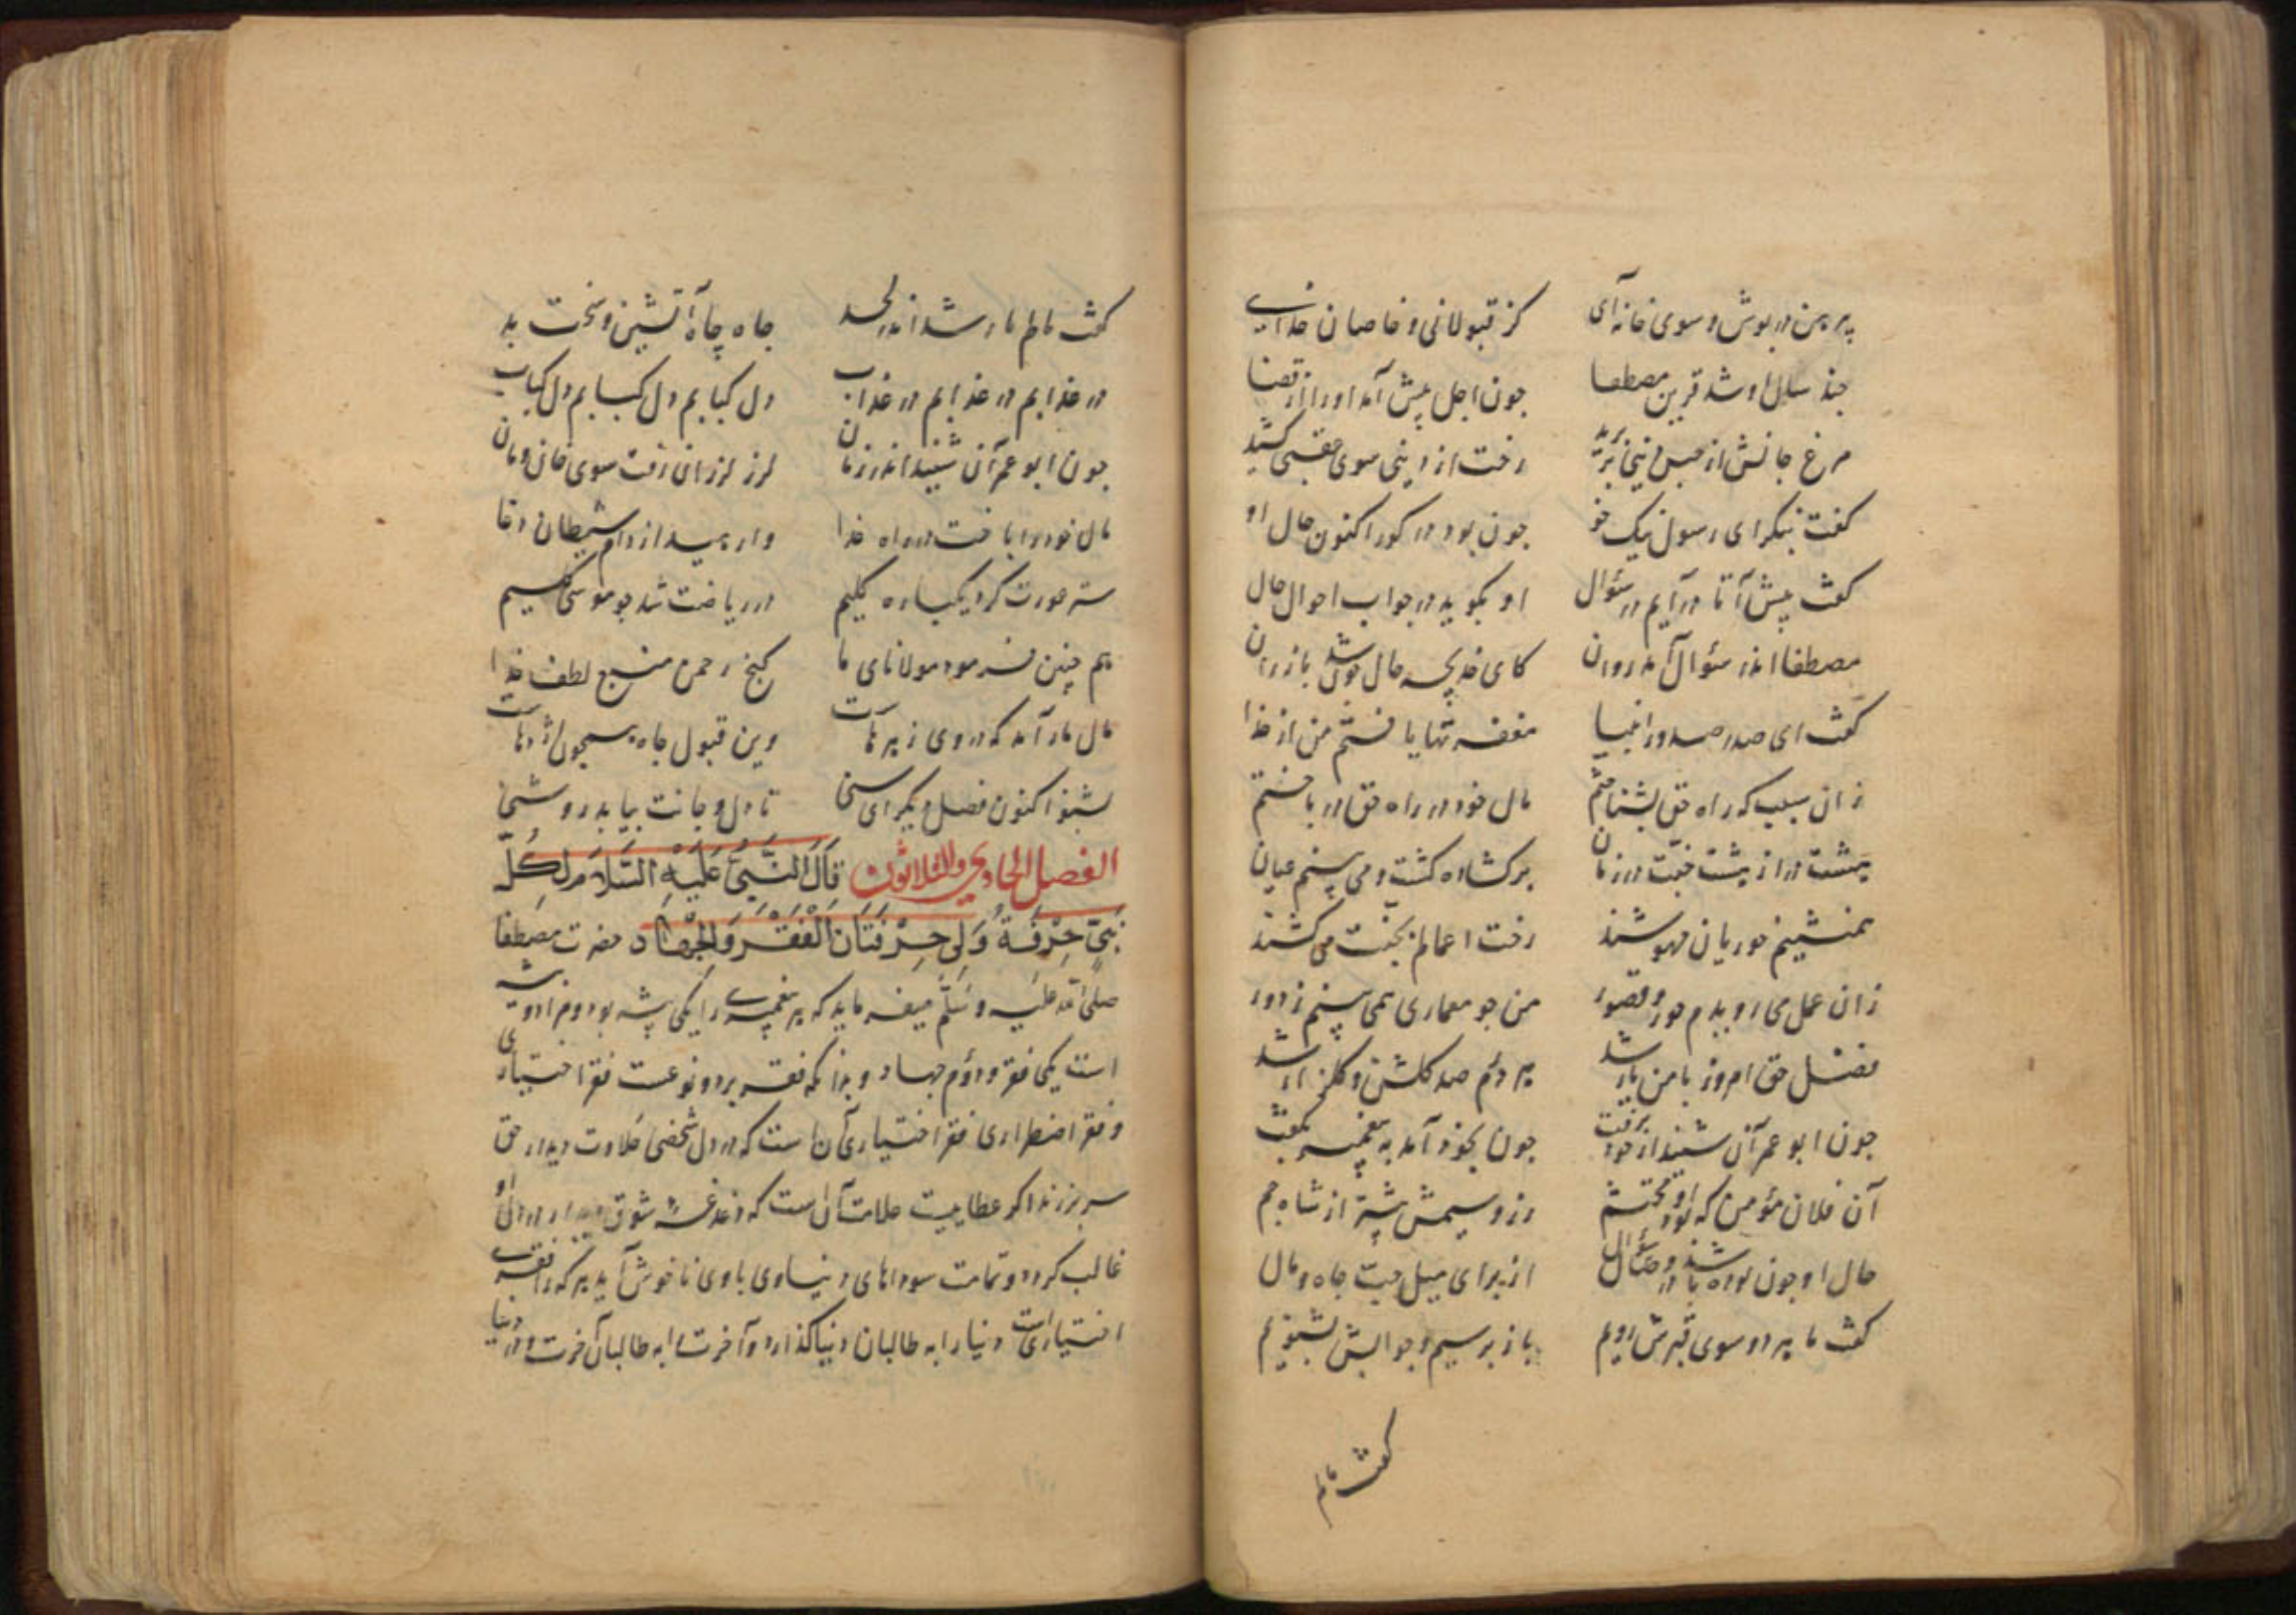 پیرهن در پوش و سوی خانه آی کز قبولانی و خاصان خدای
چند سال او شد قرین مصطفا چون اجل پیش آمد او را از قضا
مرغ جانش از حبس دنیی بر پرید رخت از دنیی سوی عقبی کشید
گفت بنگر ای رسول نیک خو چون بود در گور اکنون حال او
گفت پیش آ تا در آیم در سؤال او بگوید در جواب احوال حال
مصطفا اندر سؤال آمد روان کای خدیجه حال خوش شد باز ران
گفت ای صدر صدور انبیا مغفرتها یافتم من از خدا
زان سبب که راه حق بشناختم مال خود در راه حق در باختم
هشت در از هشت جنت در زمان بر گشاده گشت و می بینم عیان
همنشینم حوریان مهوشند رخت اعمالم بجنت می کشند
زان عمل می رویدم حور و قصور من چو معماری همی بینم ز دور
فضل حق امروز با من یار شد هر دم صد گلشن و گلزار شد
چون ابو عمر آن شنید از خود برفت چون بخود آمد به پیغمبر بگفت
آن فلان مؤمن که بود او محتشم زر و سیمش بیشتر از شاه جم
حال او چون بوده باشد در سؤال از برای میل حبت جاه و مال
گفت ما هر دو سوی قبرش رویم باز پرسیم و جوابش بشنویم
گفت مالم
گفت مالم مار شد اندر لحد جاه چاه آتشین و سخت بد
در عذابم در عذابم در عذاب دل کبابم دل کبابم دل کباب
چون ابو عمر آن شنید اندر زمان لرز لرزان رفت سوی خان و مان
مال خود را باخت در راه خدا وارهید از دام شیطان دغا
ستر عورت کرد یکپاره گلیم در ریاضت شد چو موسی کلیم
هم چنین فرمود مولانای ما گنج رحمن منبع لطف خدا
مال مار آمد که در وی زهرهاست وین قبول جاه همچون اژدهاست
بشنو اکنون فصل دیگر ای سخی تا دل و جانت بیابد روشنی
الفصل الحادی والثلاثون قال النبی علیه السلام لکل
نبی حرفة ولی حرفتان الفقر والجهاد حضرت مصطفا
صلی الله علیه و سلم میفرماید که هر پیغمبری را یکی پیشه بود و مرا دو پیشه
است یکی فقر و دوم جهاد و بدانکه فقر بر دو نوعست فقر اختیاری
و فقر اضطراری فقر اختیاری آن است که در دل شخصی حلاوت دیدار حق
سر بر زند اگر عطاییست علامت آن است که دغدغه شوق دیدار در دل او
غالب گردد و تمامت سوداهای دنیاوی با وی ناخوش آید هر که را فقری
اختیاری است دنیا را به طالبان دنیا گذارد و آخرت را به طالبان آخرت و در دنیا